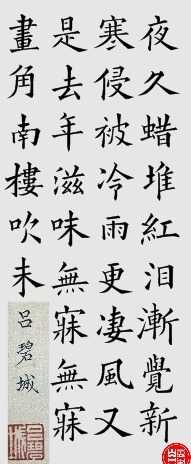 夜久蜡堆紅泪漸覺新
寒侵被冷雨更凄風又
是去年滋味無寐無寐
畫角南樓吹未
呂碧城